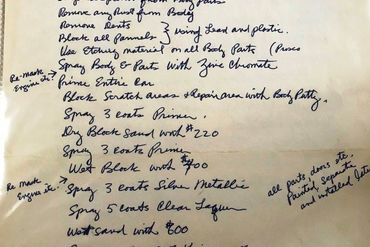 Remove any Rust from Body
Remove Dents
Block all Pannels } using Lead and plastic.
Use Etching material on all Body Parts
Re-mask Engine etc. Spray Body & Parts With Zinc Chromate
Prime Entire Car
Block Scratch areas & Repair area with Body Putty.
Spray 3 coats Primer.
Dry Block Sand with #220
Spray 3 coats Primer
Wet Block with #400
Re mask Engine etc. Spray 3 coats Silver Metallic
all parts, doors etc.
Painted, separate
and installed later
Spray 5 coats Clear Laquer
Wet sand with #600